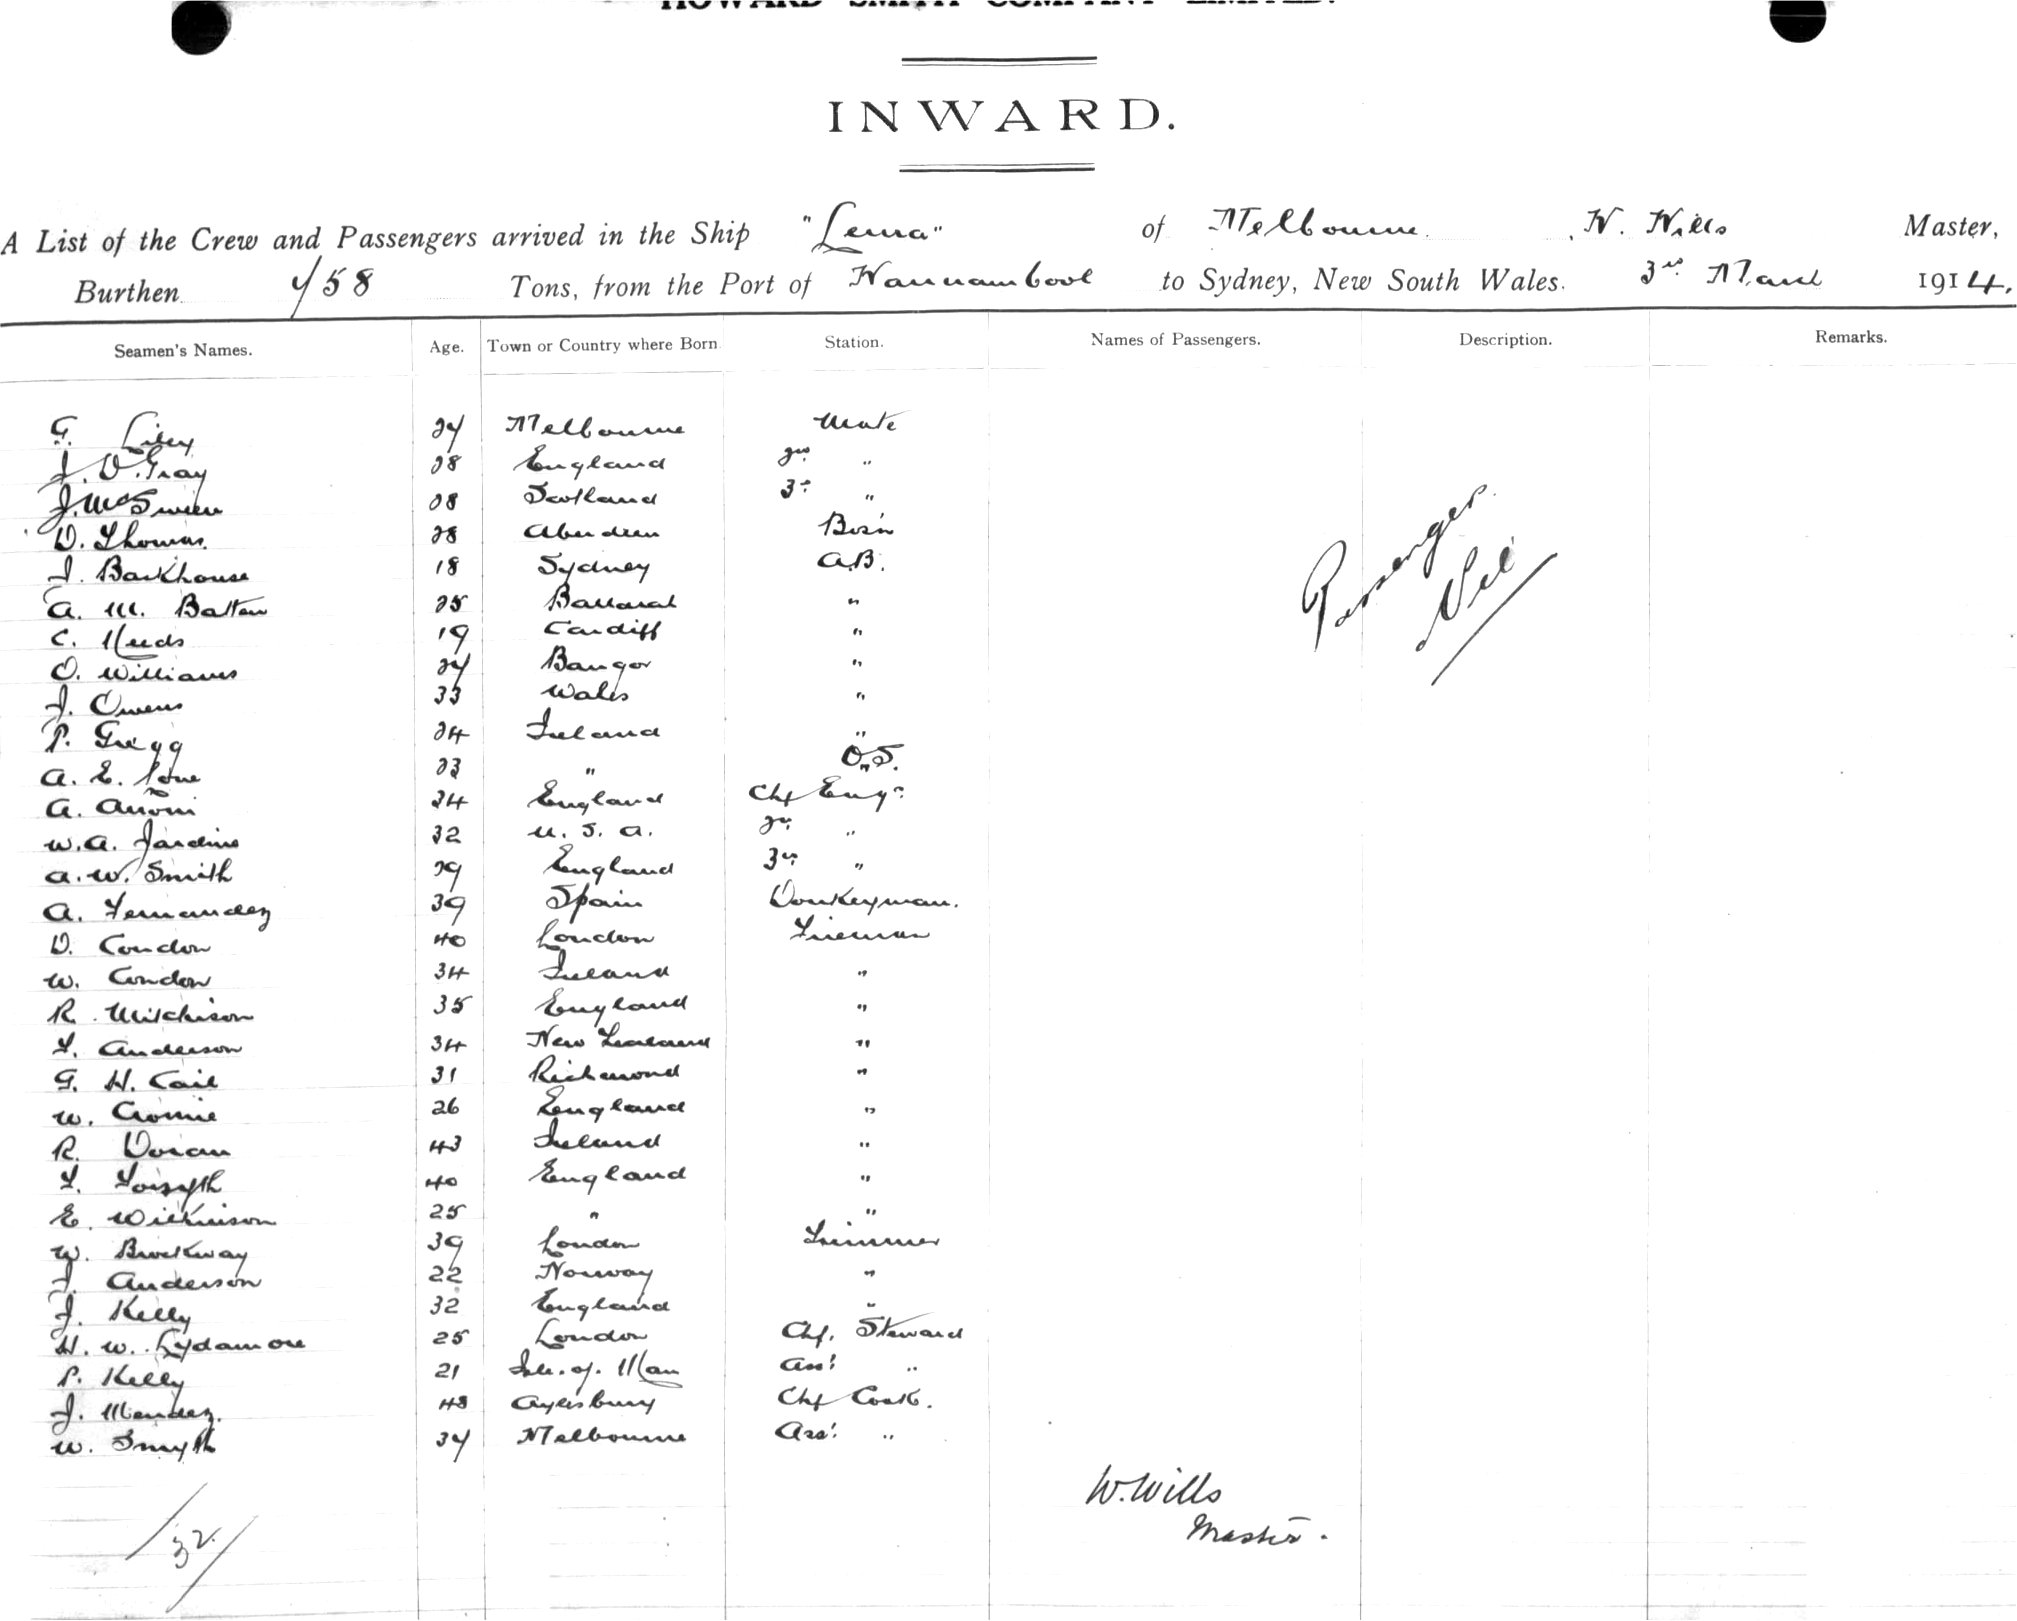 HOWARD SMITH COMPANY LIMITED.
INWARD.
A List of the Crew and Passengers arrived in the Ship "Lema" of Melbourne, W. Wills Master,
Burthen 758 Tons, from the Port of Warrnambool to Sydney, New South Wales. 3rd March 1914.
Seamen's Names. Age. Town or Country where Born. Station. Names of Passengers. Description. Remarks.
G. Liley 27 Melbourne Mate
J. D. Gray 28 England 2nd "
J. McSween 28 Scotland 3rd "
D. Thomas. 28 Aberdeen Bos'n
J. Backhouse 18 Sydney A.B.
A. M. Batten 25 Ballarat "
C. Heeds 19 Cardiff "
O. Williams 27 Bangor "
J. Owens 33 Wales "
P. Gregg 24 Ireland "
A. E. 23 " O.S.
A. 34 England Chf Engr
W. A. Jardine 32 U. S. A. 2nd "
A. W. Smith 29 England 3rd "
A. Fernandez 39 Spain Donkeyman.
D. Condon 40 London Fireman
W. Condon 34 Ireland "
R. Mitchison 35 England "
F. Anderson 34 New Zealand "
G. H. Cail 31 Richmond "
W. Cromie 26 England "
R. Doran 43 Ireland "
F. Forsyth 40 England "
E. Wilkinson 25 " "
W. Brockway 39 London Trimmer
J. Anderson 22 Norway "
J. Kelly 32 England "
H. W. Lydamore 25 London Chf. Steward
P. Kelly 21 Isle. of. Man Asst "
J. Mendez. 43 Aylesbury Chf Cook.
W. Smyth 37 Melbourne Asst "
Passengers
Nil
W. Wills
Master.
32.